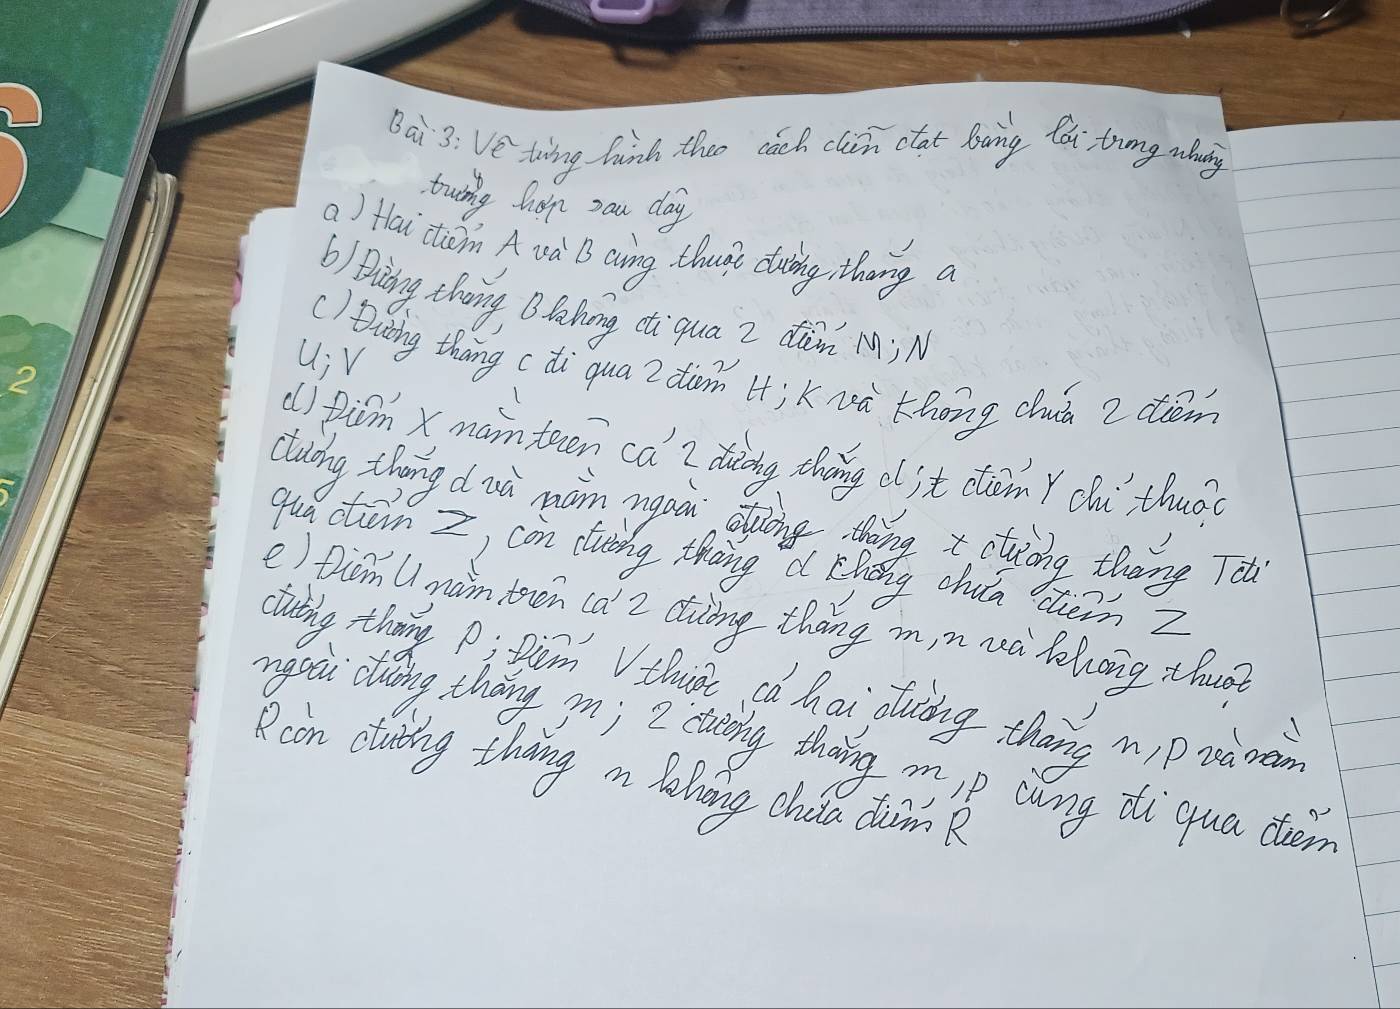 6
2
5
Bài 3: Vẽ từng hình theo cách diễn đạt bằng lời trong những
trường hợp sau đây
a) Hai điểm A và B cùng thuộc đường thẳng a
b) Đường thẳng B không đi qua 2 điểm M; N
c) Đường thẳng c đi qua 2 điểm H; K và không chứa 2 điểm
U; V
d) Điểm X nằm trên cả 2 đường thẳng d; t điểm Y chỉ thuộc
đường thẳng d và nằm ngoài đường thẳng t đường thẳng T đi
qua điểm Z, còn đường thẳng d không chứa điểm Z
e) Điểm U nằm trên cả 2 đường thẳng m, n và không thuộc
đường thẳng P; Điểm V thuộc cả hai đường thẳng n, p và nằm
ngoài đường thẳng m; 2 đường thẳng m, p cùng đi qua điểm
R còn đường thẳng n không chứa điểm R